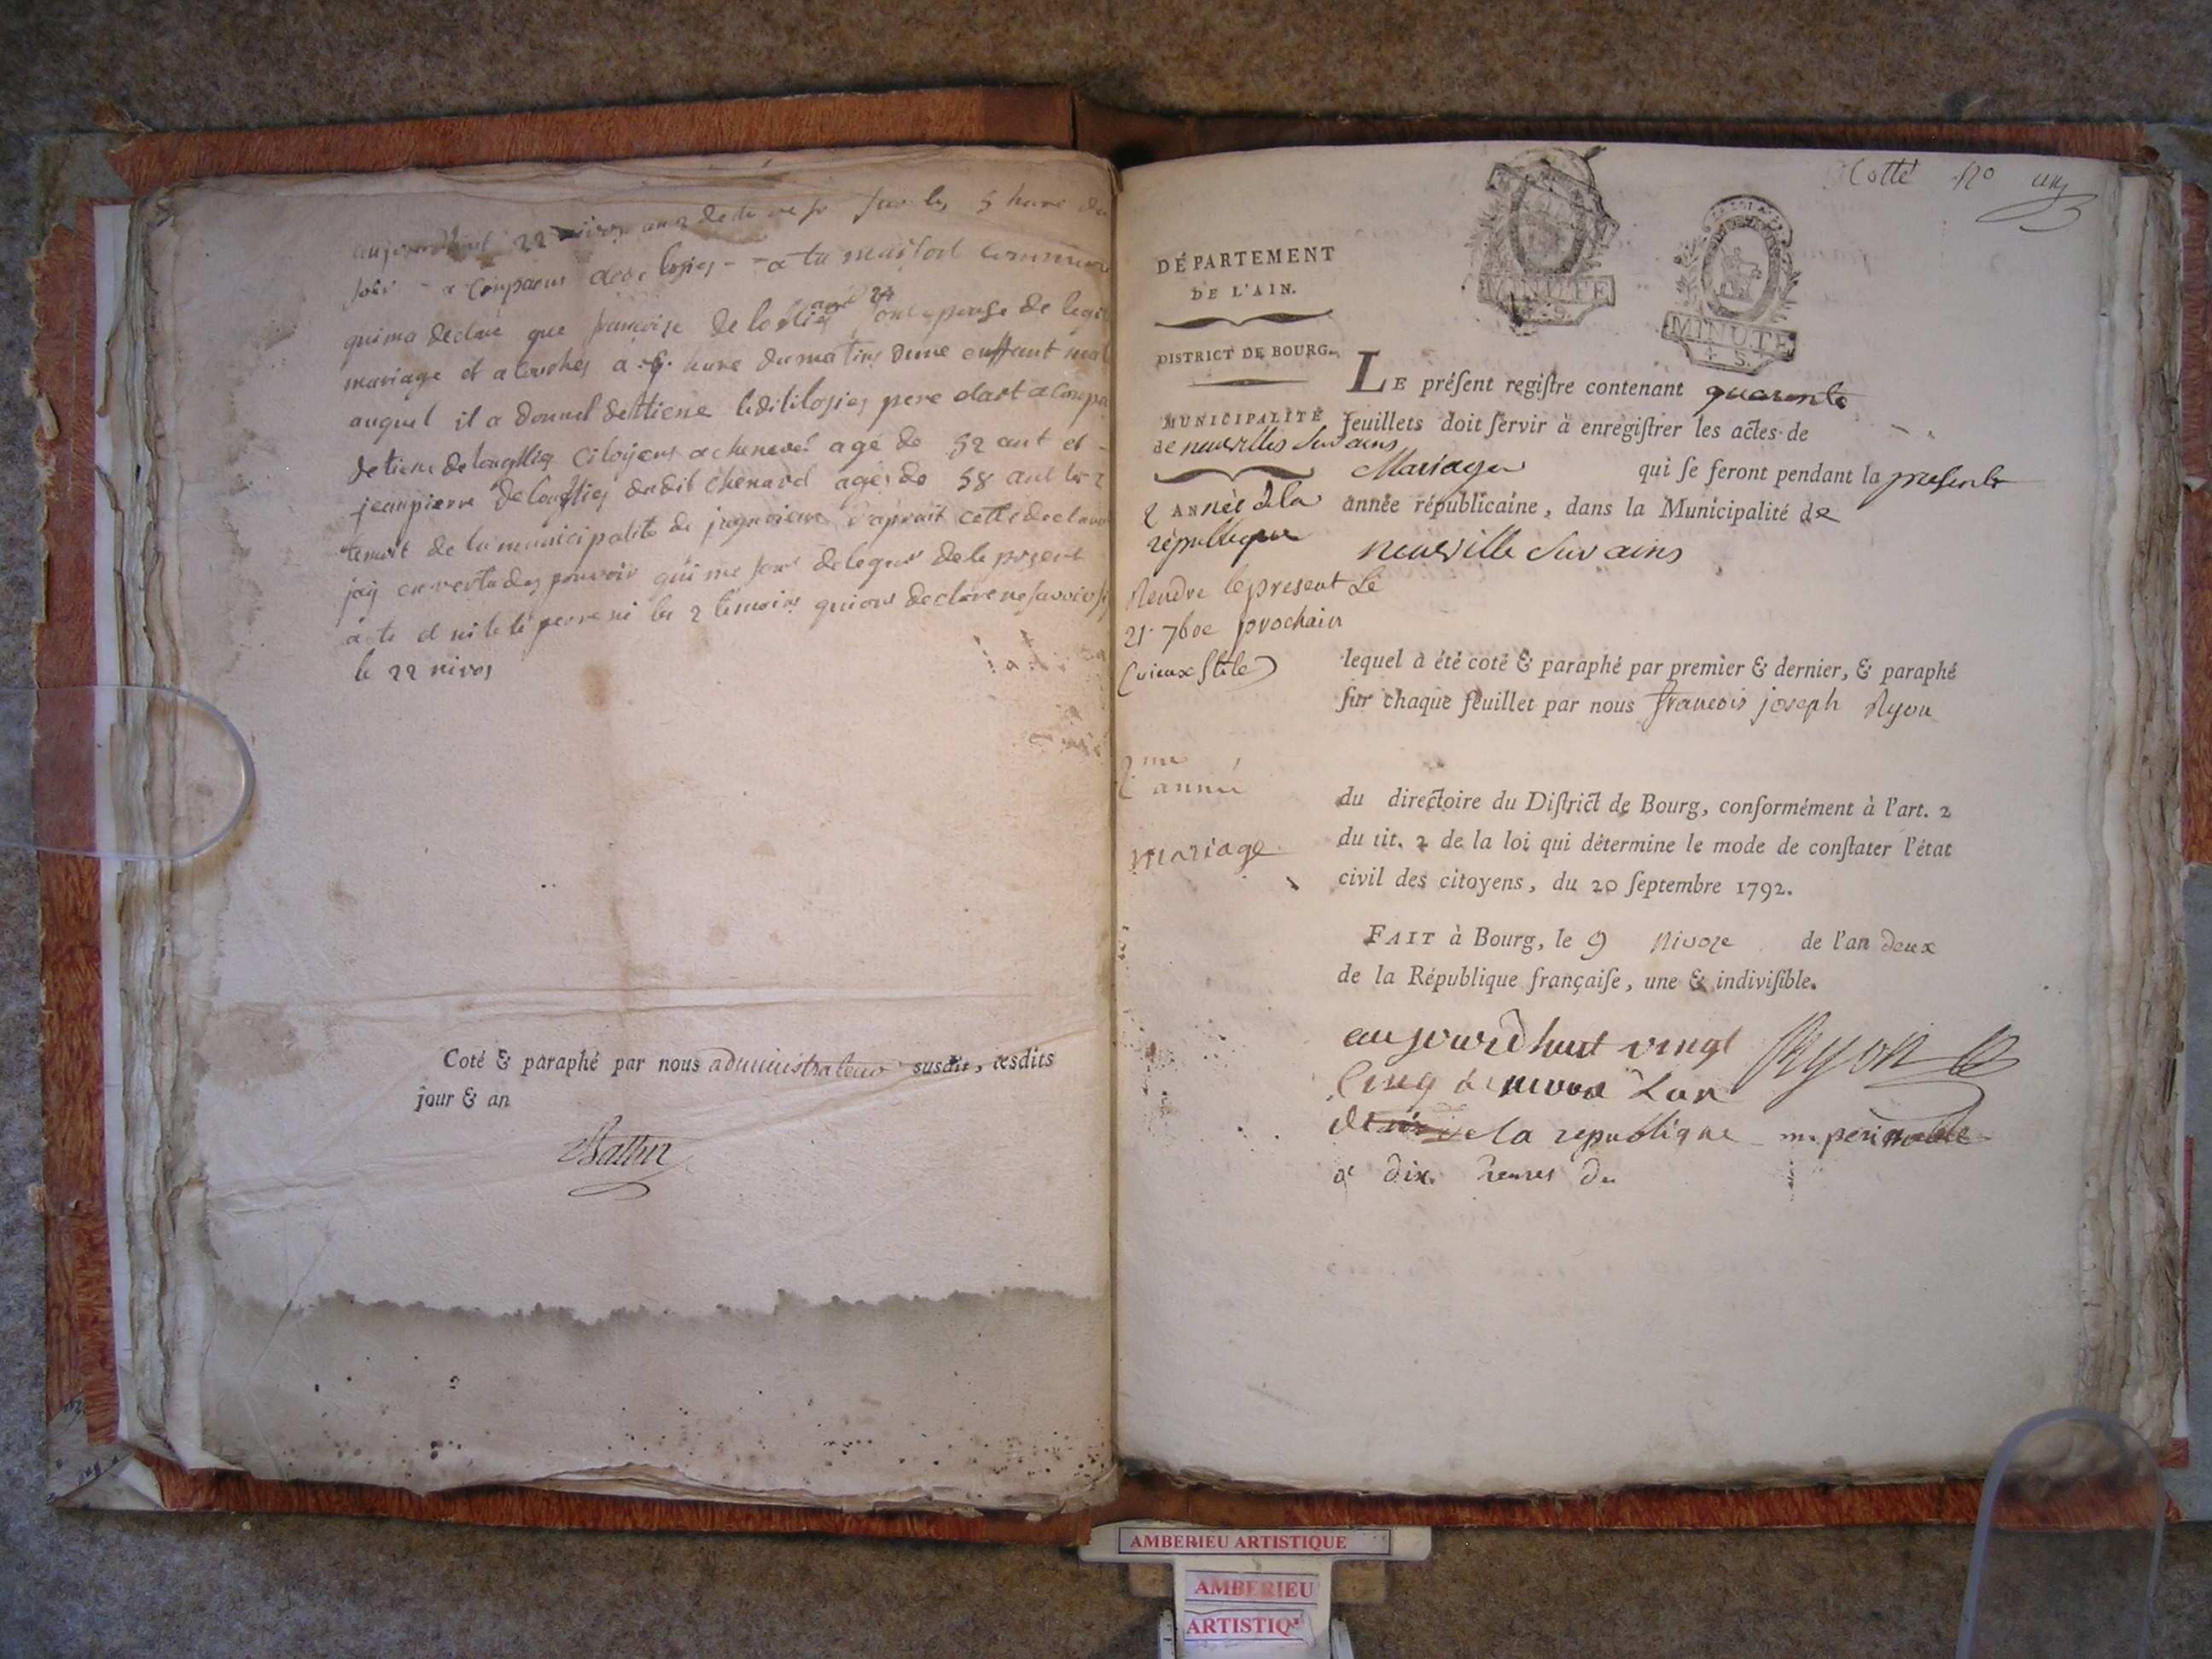 aujourdhuit 22 nivos an 2 de sur les 5 hure du
soir - a comparus - - a la maison commune
qui ma declaré que francoise age 24 son epouse de legit
mariage et acouches a hure du matin dune enffant mal
auquel il a donnel destiene ledit pere
de tiene citoijens a chenevel agé de 52 ant et
jeanpierre dudit chenavel ages de 58 ant les 2
temoit de la municipalite de jugurieux d'aprait cette declara
jaij en vertu des pouvoir qui me sont delegues de le present
acte et ni le perre ni les 2 temoins qui ont declare ne savoir si
le 22 nivos
Coté & paraphé par nous administrateur susdit, cesdits
jour & an
Cotté No un
MINUTE
S.
MINUTE
+ S. +
DÉPARTEMENT
DE L'AIN.
DISTRICT DE BOURG.
MUNICIPALITÉ
de neuvilles sur ains
2 ANnéé de la
république
Rendre le present Le
21. 7bre prochain
(vieux stile)
2me
année
mariage
LE préſent regiſtre contenant quarente
feuillets doit ſervir à enregiſtrer les actes de
Mariages qui ſe feront pendant la presente
année républicaine, dans la Municipalité de
neuville sur ains
lequel à été coté & paraphé par premier & dernier, & paraphé
ſur chaque feuillet par nous francois joseph Ryon
du directoire du Diſtrict de Bourg, conformément à l'art. 2
du tit. 2 de la loi qui détermine le mode de conſtater l'état
civil des citoyens, du 20 ſeptembre 1792.
FAIT à Bourg, le 9 Nivoze de l'an deux
de la République françaiſe, une & indiviſible.
Ryon
aujourdhuit vingt
Cinq de nivos Lan
de la republique imperissable
a dix heures du
AMBERIEU ARTISTIQUE
AMBERIEU
ARTISTIQ